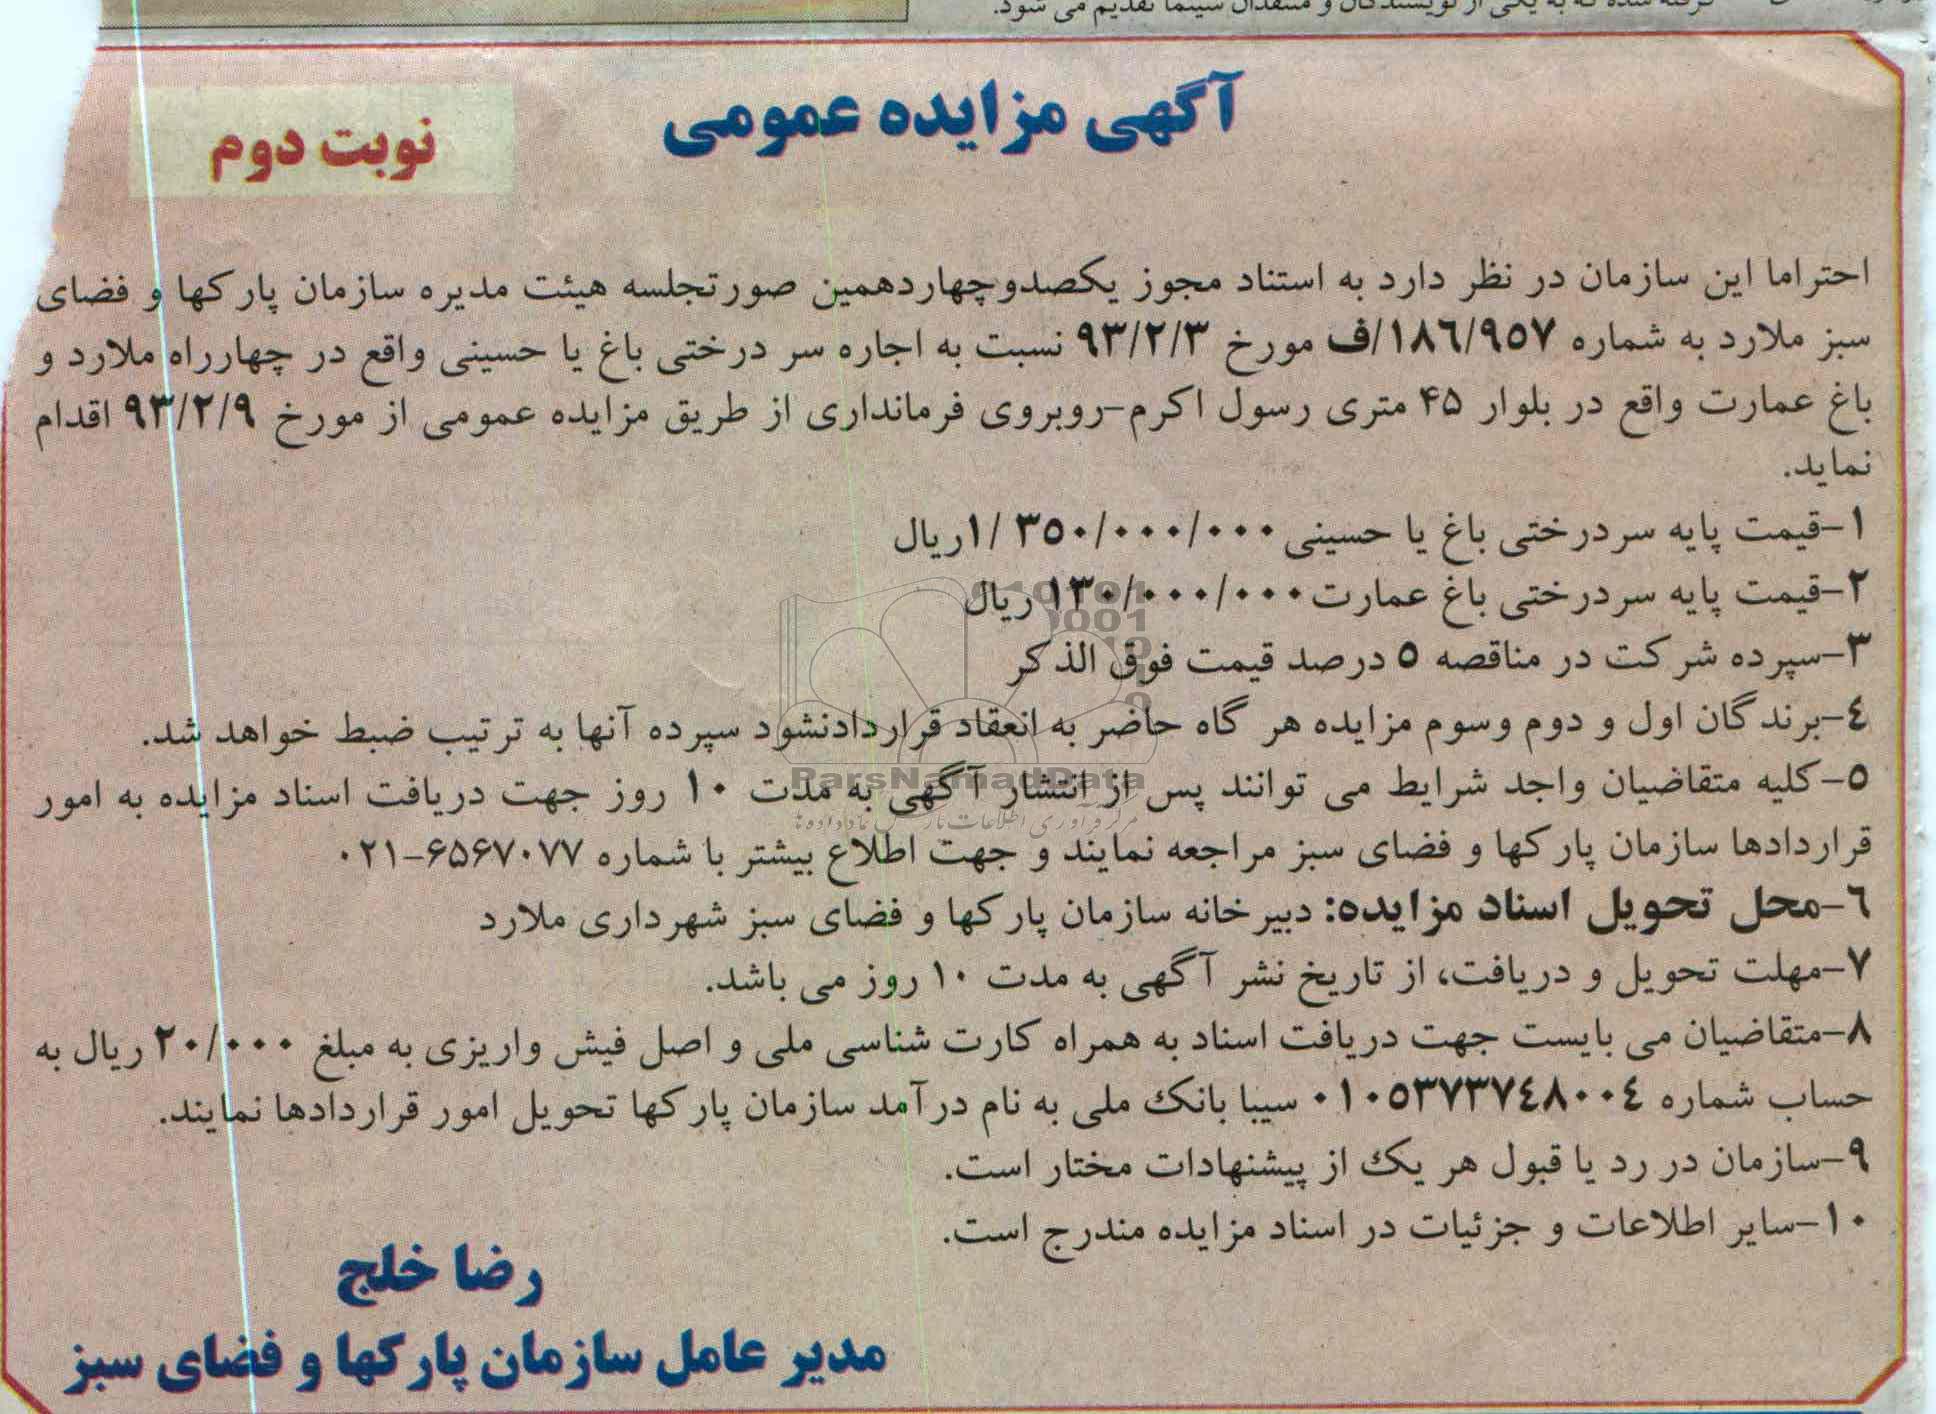 گرفته شده که به یکی از نویسندگان و منتقدان سینما تقدیم می شود.
آگهی مزایده عمومی
نوبت دوم
احتراما این سازمان در نظر دارد به استناد مجوز یکصدوچهاردهمین صورتجلسه هیئت مدیره سازمان پارکها و فضای
سبز ملارد به شماره ۱۸۶/۹۵۷/ف مورخ ۹۳/۲/۳ نسبت به اجاره سر درختی باغ یا حسینی واقع در چهارراه ملارد و
باغ عمارت واقع در بلوار ۴۵ متری رسول اکرم-روبروی فرمانداری از طریق مزایده عمومی از مورخ ۹۳/۲/۹ اقدام
نماید.
۱-قیمت پایه سردرختی باغ یا حسینی ۱/۳۵۰/۰۰۰/۰۰۰ریال
۲-قیمت پایه سردرختی باغ عمارت ۱۳۰/۰۰۰/۰۰۰ ریال
۳-سپرده شرکت در مناقصه ۵ درصد قیمت فوق الذکر
۴-برندگان اول و دوم وسوم مزایده هر گاه حاضر به انعقاد قراردادنشود سپرده آنها به ترتیب ضبط خواهد شد.
ParsNamadData
۵-کلیه متقاضیان واجد شرایط می توانند پس از انتشار آگهی به مدت ۱۰ روز جهت دریافت اسناد مزایده به امور
قراردادها سازمان پارکها و فضای سبز مراجعه نمایند و جهت اطلاع بیشتر با شماره ۶۵۶۷۰۷۷-۰۲۱
۶-محل تحویل اسناد مزایده: دبیرخانه سازمان پارکها و فضای سبز شهرداری ملارد
۷-مهلت تحویل و دریافت، از تاریخ نشر آگهی به مدت ۱۰ روز می باشد.
۸-متقاضیان می بایست جهت دریافت اسناد به همراه کارت شناسی ملی و اصل فیش واریزی به مبلغ ۲۰/۰۰۰ ریال به
حساب شماره ۰۱۰۵۳۷۳۷۴۸۰۰۴ سیبا بانک ملی به نام درآمد سازمان پارکها تحویل امور قراردادها نمایند.
۹-سازمان در رد یا قبول هر یک از پیشنهادات مختار است.
۱۰-سایر اطلاعات و جزئیات در اسناد مزایده مندرج است.
رضا خلج
مدیر عامل سازمان پارکها و فضای سبز